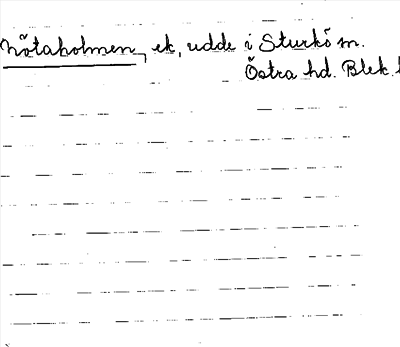 Nötaholmen, ek, udde i Sturkö sn.
Östra hd. Blek.